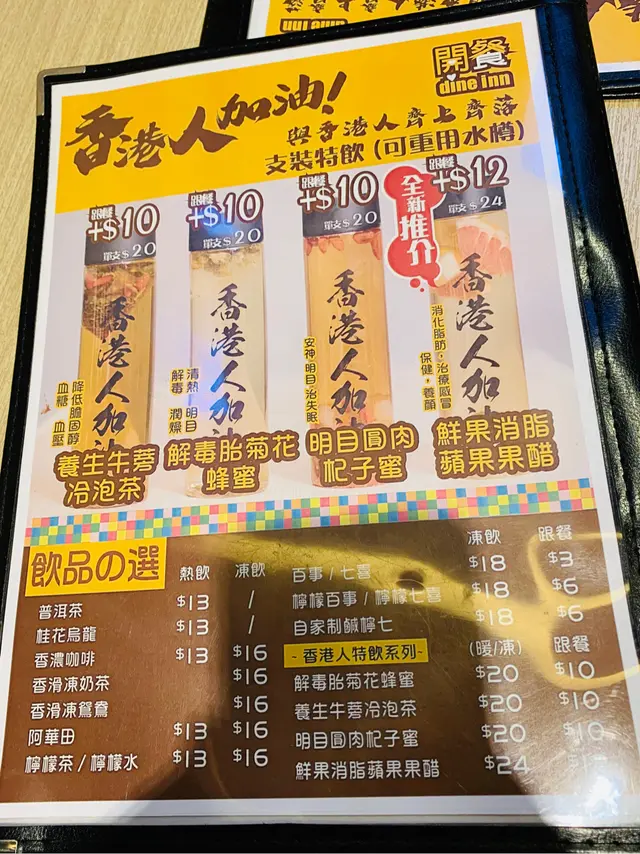 開餐
dine inn
香港人加油!
與香港人齊上齊落
支裝特飲 (可重用水樽)
跟餐
+$10
單支$20
跟餐
+$10
單支$20
跟餐
+$10
單支$20
跟餐
+$12
單支$24
全新推介
香港人加油
香港人加油
香港人加油
香港人加油
降低膽固醇
血糖 血壓
清熱 明目
解毒 潤燥
安神 明目 治失眠
消化脂肪,治療感冒
保健,養顏
養生牛蒡
冷泡茶
解毒胎菊花
蜂蜜
明目圓肉
杞子蜜
鮮果消脂
蘋果果醋
飲品の選 熱飲 凍飲
普洱茶 $13 /
桂花烏龍 $13 /
香濃咖啡 $13 $16
香滑凍奶茶 $16
香滑凍鴛鴦 $16
阿華田 $13 $16
檸檬茶 / 檸檬水 $13 $16
凍飲 跟餐
百事 / 七喜 $18 $3
檸檬百事 / 檸檬七喜 $18 $6
自家制鹹檸七 $18 $6
~香港人特飲系列~ (暖/凍) 跟餐
解毒胎菊花蜂蜜 $20 $10
養生牛蒡冷泡茶 $20 $10
明目圓肉杞子蜜 $20 $10
鮮果消脂蘋果果醋 $24